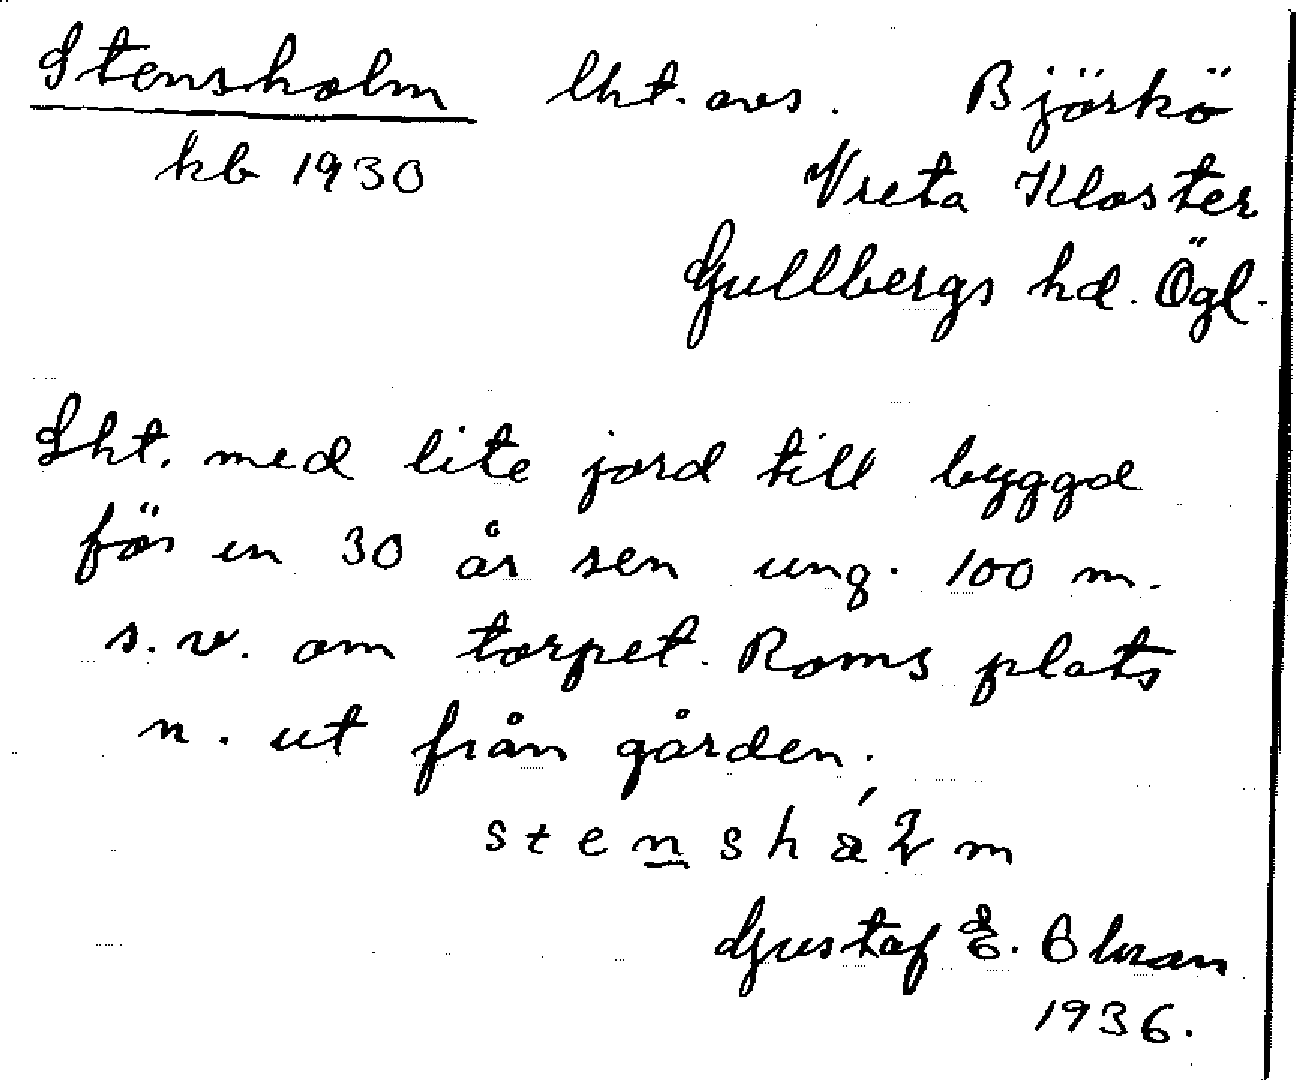 Stensholm lht. avs. Björkö
kb 1930 Vreta Kloster
Gullbergs hd. Ögl.
Lht. med lite jord till byggd
för en 30 år sen ung. 100 m.
s.v. om torpet. Roms plats
n. ut från gården.
stensh m
Gustaf E.
1936.